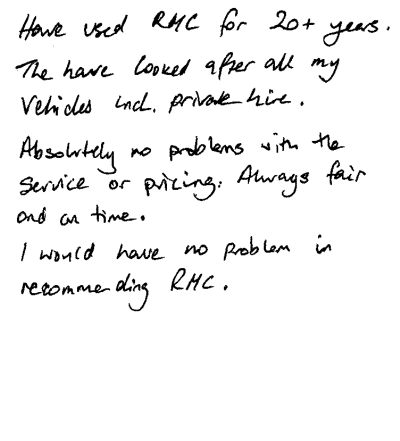 Have used RMC for 20+ years.
The have looked after all my
Vehicles incl. private hire.
Absolutely no problems with the
Service or pricing. Always fair
and on time.
I would have no problem in
recommending RMC.